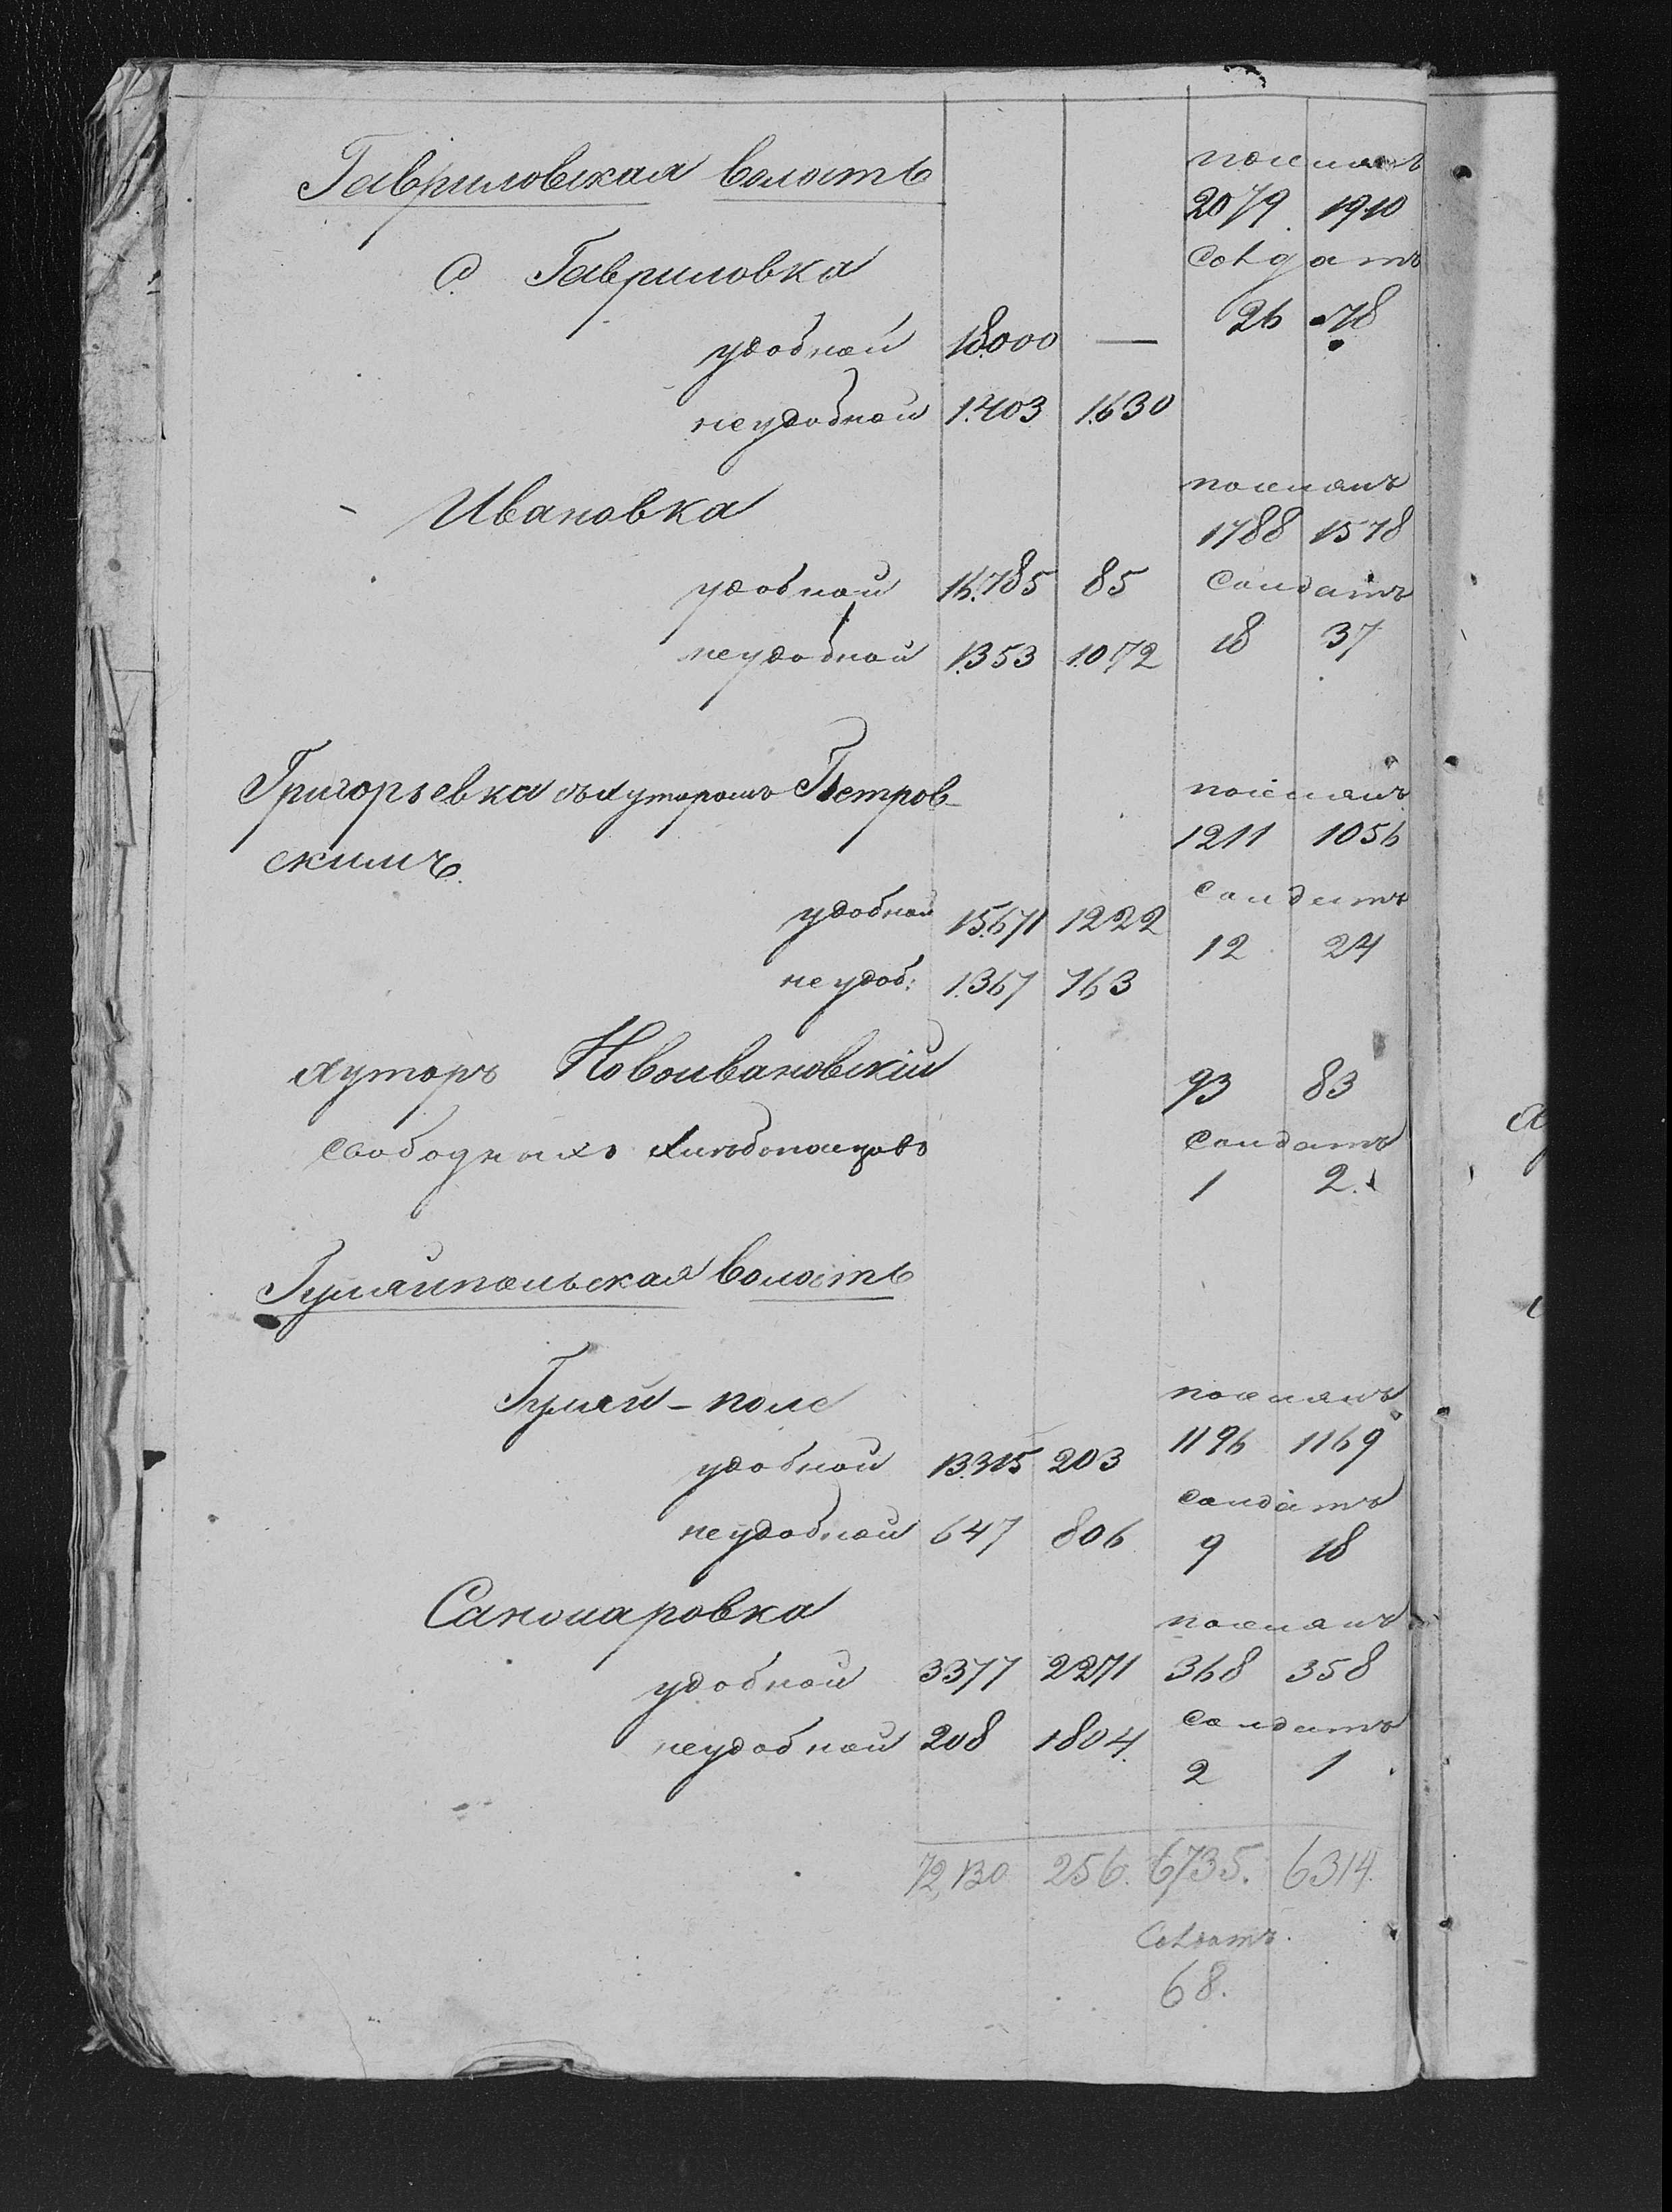 Гавриловская волость
поселянъ
2079. 1910
С. Гавриловка
Солдатъ
26 78
удобной 18000 —
неудобной 1.403 1.630
Ивановка
поселянъ
1788 1578
удобной 16.785 85
Солдатъ
неудобной 1.353 1.072
18 37
Григорьевка съ хуторомъ Петров-
скимъ.
поселянъ
1211 1056
Солдатъ
удобной 15.671 1222
12 24
неудоб: 1.367 763
хуторъ Новоивановскій
93 83
свободныхъ хлебопашцовъ
Солдатъ
1 2.
Гуляйпольская волость
Гуляй-поле
поселянъ
1196 1169
удобной 13.315 203
Солдатъ
неудобной 647 806
9 18
Санжаровка
поселянъ
удобной 3377 2271 368 358
неудобной 208 1804.
Солдатъ
2 1
72,130 256. 6735. 6314.
Солдатъ.
68.